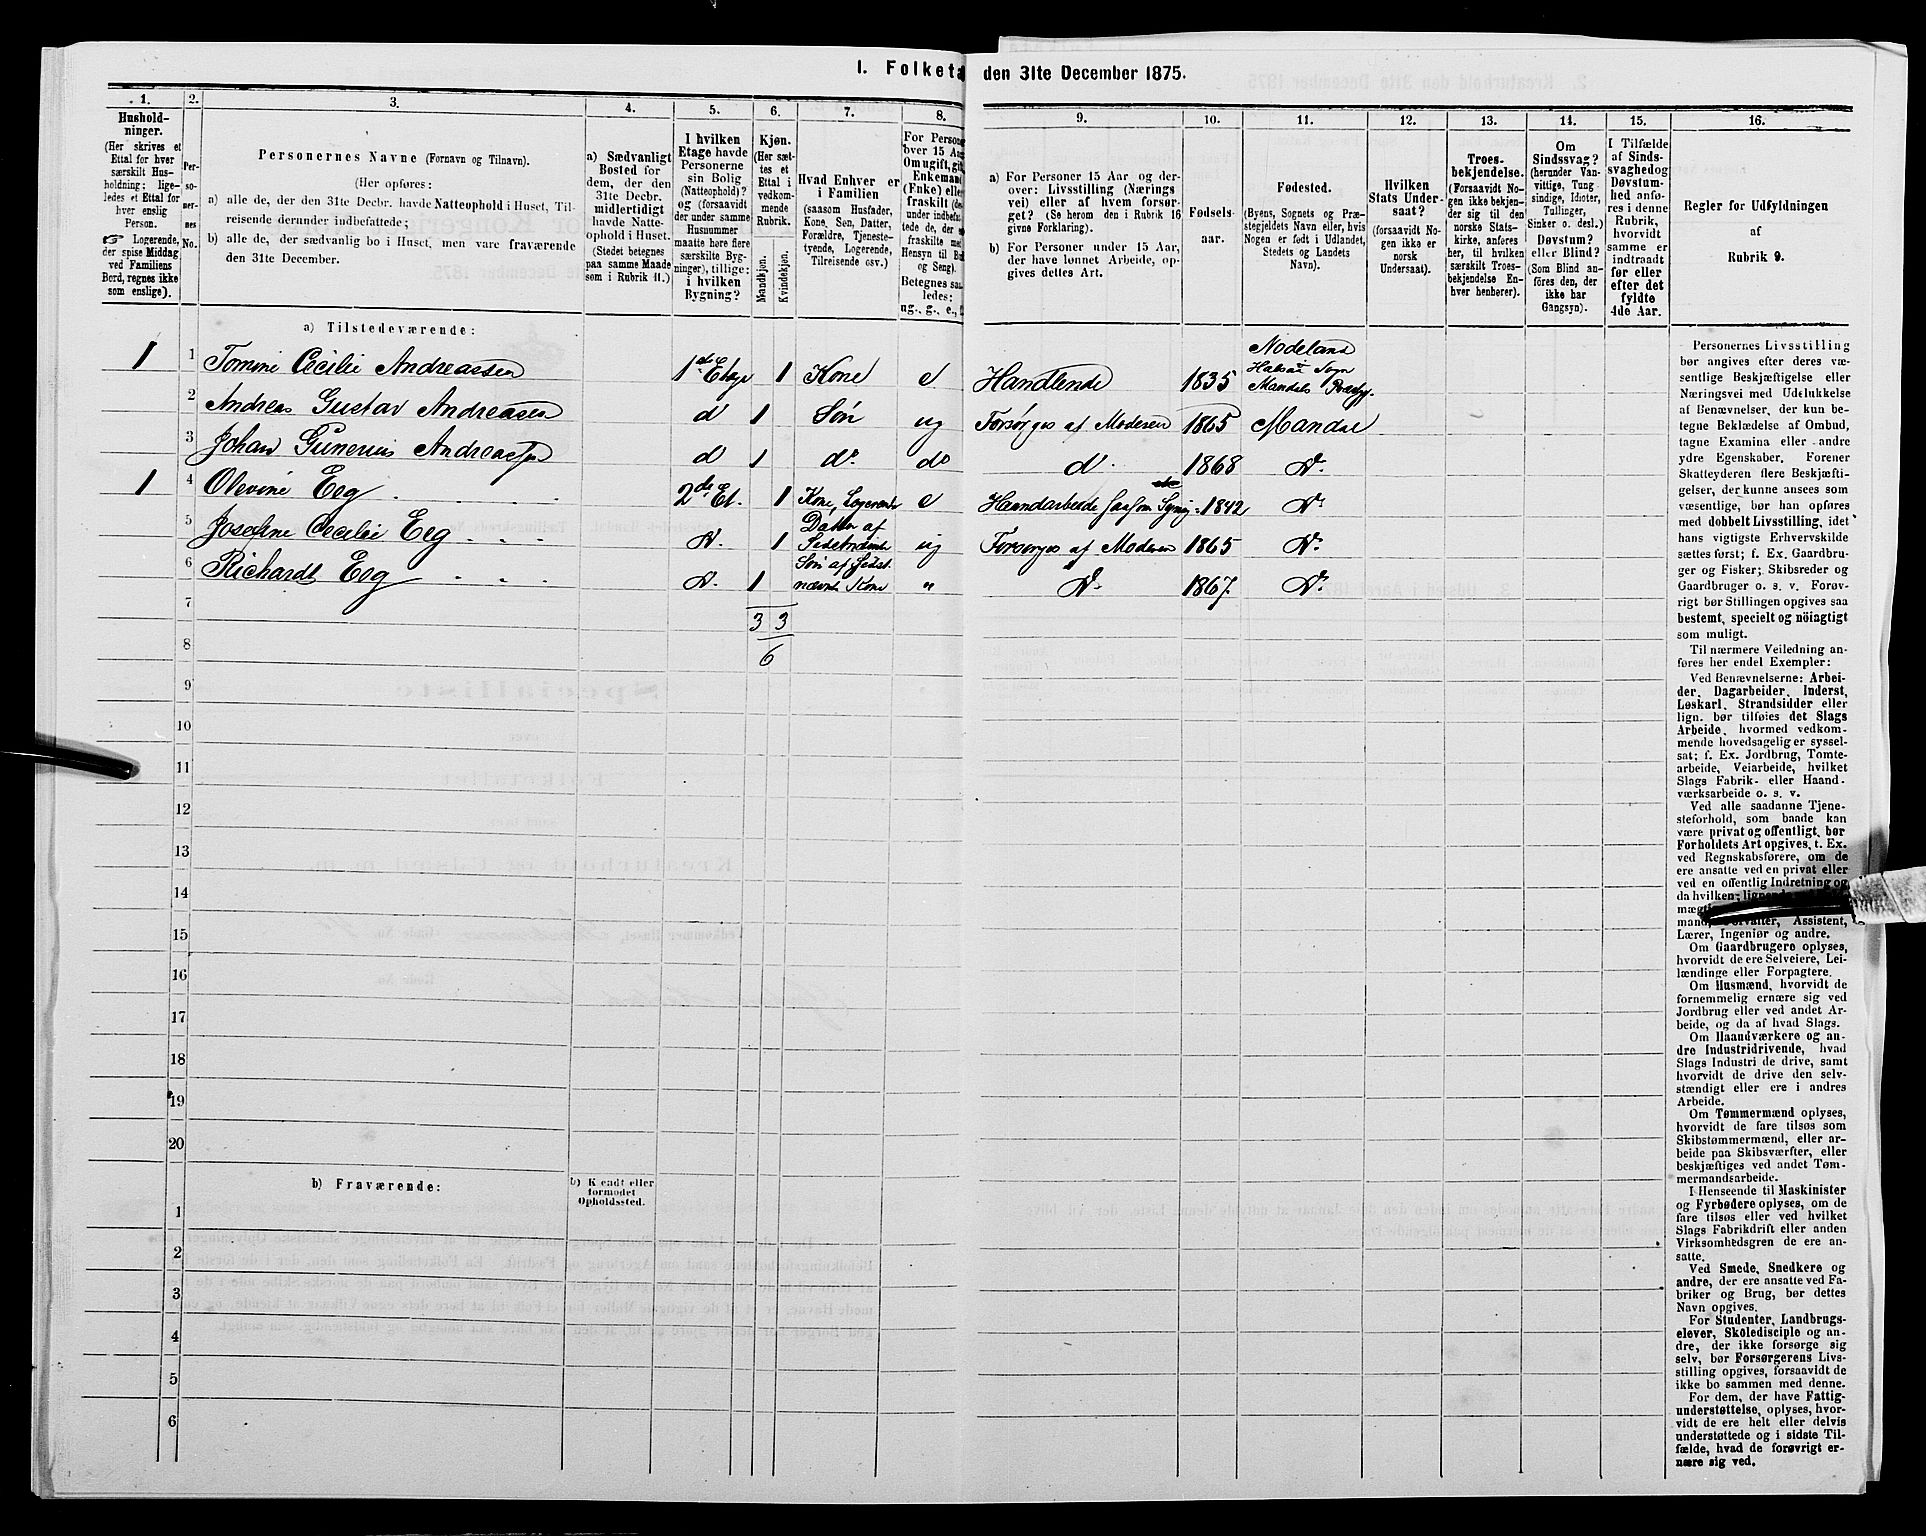 I. Folketa
den 31te December 1875.
1.
Hushold-
ninger.
(Her skrives et
Ettal for hver
særskilt Hus-
holdning; lige-
ledes et Ettal for
hver enslig
Person.
Logerende,
der spise Middag
ved Familiens
Bord, regnes ikke
som enslige).
2.
Per-
so-
ner-
nes
No.
3.
Personernes Navne (Fornavn og Tilnavn).
(Her opføres:
a) alle de, der den 31te Decbr. havde Natteophold i Huset, Til-
reisende derunder indbefattede;
b) alle de, der sædvanlig bo i Huset, men vare fraværende
den 31te December.
4.
a) Sædvanligt
Bosted for
dem, der den
31te Decbr.
midlertidigt
havde Natte-
ophold i Huset.
(Stedet betegnes
paa samme Maade
som i Rubrik 11.)
5.
I hvilken
Etage havde
Personerne
sin Bolig
(Natteophold)?
og (forsaavidt
der under samme
Husnummer
maatte høre flere
særskilte Byg-
ninger), tillige:
i hvilken
Bygning?
6.
Kjøn.
(Her sæt-
tes et
Ettal i
vedkom-
mende
Rubrik.
Mandkjøn.
Kvindekjøn.
7.
Hvad Enhver er
i Familien
(saasom Husfader,
Kone, Søn, Datter,
Forældre, Tjeneste-
tyende, Logerende,
Tilreisende osv.)
8.
For Person
over 15 Aa
Omugift, gif
Enkeman
(Enke) elle
fraskilt (de
under indbe
tede de, de
fraskilte me
Hensyn til Bo
og Seng).
Betegnes saa
ledes:
ug., g., e.,
9.
a) For Personer 15 Aar og der-
over: Livsstilling (Nærings
vei) eller af hvem forsør-
get? (Se herom den i Rubrik 16
givne Forklaring).
b) For Personer under 15 Aar,
der have lønnet Arbeide, op-
gives dettes Art.
10.
Fødsels-
aar.
11.
Fødested.
(Byens, Sognets og Præ-
stegjeldets Navn eller, hvis
Nogen er født i Udlandet,
Stedets og Landets
Navn).
12.
Hvilken
Stats Under-
saat?
(forsaavidt No-
gen ikke er
norsk
Undersaat).
13.
Troes-
bekjendelse.
(Forsaavidt No-
gen ikke bekjen-
der sig til den
norske Stats-
kirke, anføres
her, til hvilken
særskilt Troes-
bekjendelse En-
hver henhører).
14.
Om
Sindssvag?
(herunder Van-
vittige, Tung-
sindige, Idioter,
Tullinger,
Sinker o. desl.)
Døvstum?
eller Blind?
(Som Blind an-
føres den, der
ikke har
Gangsyn).
15.
I Tilfælde
af Sinds-
svaghed og
Døvstum-
hed anfø-
res i denne
Rubrik,
hvorvidt
samme er
indtraadt
før eller
efter det
fyldte
4de Aar.
16.
Regler for Udfyldningen
af
Rubrik 9.
a) Tilstedeværende:
1 1 Tomine Cecilie Andreassen 1ste Etage 1 Kone e Handlende 1835 Nodeland Halsaa Sogn Mandals Præstg.
2 Andreas Gustav Andreasen d 1 Søn ug Forsørges af Moderen 1865 Mandal
3 Johan Gunerius Andreassen d 1 do. do d. 1868 D.
1 4 Olevine Eeg 2de Et. 1 Kone, Logerende e Haandarbeide saasom Syning 1842 D.
5 Josefine Cecilie Eeg D. 1 Datter af Sidstnævnte ug Forsørges af Moderen 1865 D.
6 Richardt Eeg D. 1 Søn af Sidst nævnte Kone " D. 1867. D.
7 3 3
8 6
9
10
11
12
13
14
15
16
17
18
19
20
b) Fraværende:
b) Kjendt eller
formodet
Opholdssted.
1
2
3
4
5
6
Personernes Livsstilling
bør angives efter deres væ-
sentlige Beskjæftigelse eller
Næringsvei med Udelukkelse
af Benævnelser, der kun be-
tegne Beklædelse af Ombud,
tagne Examina eller andre
ydre Egenskaber. Forener
Skatteyderen flere Beskjæfti-
gelser, der kunne ansees som
væsentlige, bør han opføres
med dobbelt Livsstilling, idet
hans vigtigste Erhvervskilde
sættes først; f. Ex. Gaardbru-
ger og Fisker; Skibsreder og
Gaardbruger o. s. v. Forøv-
rigt bør Stillingen opgives saa
bestemt, specielt og nöiagtigt
som muligt.
Til nærmere Veiledning an-
føres her endel Exempler:
Ved Benævnelserne: Arbei-
der, Dagarbeider, Inderst,
Løskarl, Strandsidder eller
lign. bør tilføies det Slags
Arbeide, hvormed vedkom-
mende hovedsagelig er syssel-
sat; f. Ex. Jordbrug, Tomte-
arbeide, Veiarbeide, hvilket
Slags Fabrik- eller Haand-
værksarbeide o. s. v.
Ved alle saadanne Tjene-
steforhold, som baade kan
være privat og offentligt, bør
Forholdets Art opgives, t. Ex.
ved Regnskabsførere, om de
ere ansatte ved en privat eller
ved en offentlig Indretning og
da hvilken;
Assistent,
Lærer, Ingeniør og andre.
Om Gaardbrugere oplyses,
hvorvidt de ere Selveiere, Lei-
lændinge eller Forpagtere.
Om Husmænd, hvorvidt de
fornemmelig ernære sig ved
Jordbrug eller ved andet Ar-
beide, og da af hvad Slags.
Om Haandværkere og an-
dre Industridrivende, hvad
Slags Industri de drive, samt
hvorvidt de drive den selv-
stændigt eller ere i andres
Arbeide.
Om Tømmermænd oplyses,
hvorvidt de fare tilsøs som
Skibstømmermænd, eller ar-
beide paa Skibsværfter, eller
beskjæftiges ved andet Tøm-
mermandsarbeide.
I Henseende til Maskinister
og Fyrbødere oplyses, om de
fare tilsøs eller ved hvilket
Slags Fabrikdrift eller anden
Virksomhedsgren de ere an-
satte.
Ved Smede, Snedkere og
andre, der ere ansatte ved Fa-
briker og Brug, bør dettes
Navn opgives.
For Studenter, Landbrugs-
elever, Skoledisciple og an-
dre, der ikke forsørge sig
selv, bør Forsørgerens Livs-
stilling opgives, forsaavidt de
ikke bo sammen med denne.
For dem, der have Fattig-
understøttelse, oplyses, hvor-
vidt de ere helt eller delvis
understøttede og i sidste Til-
fælde, hvad de forøvrigt er-
nære sig ved.